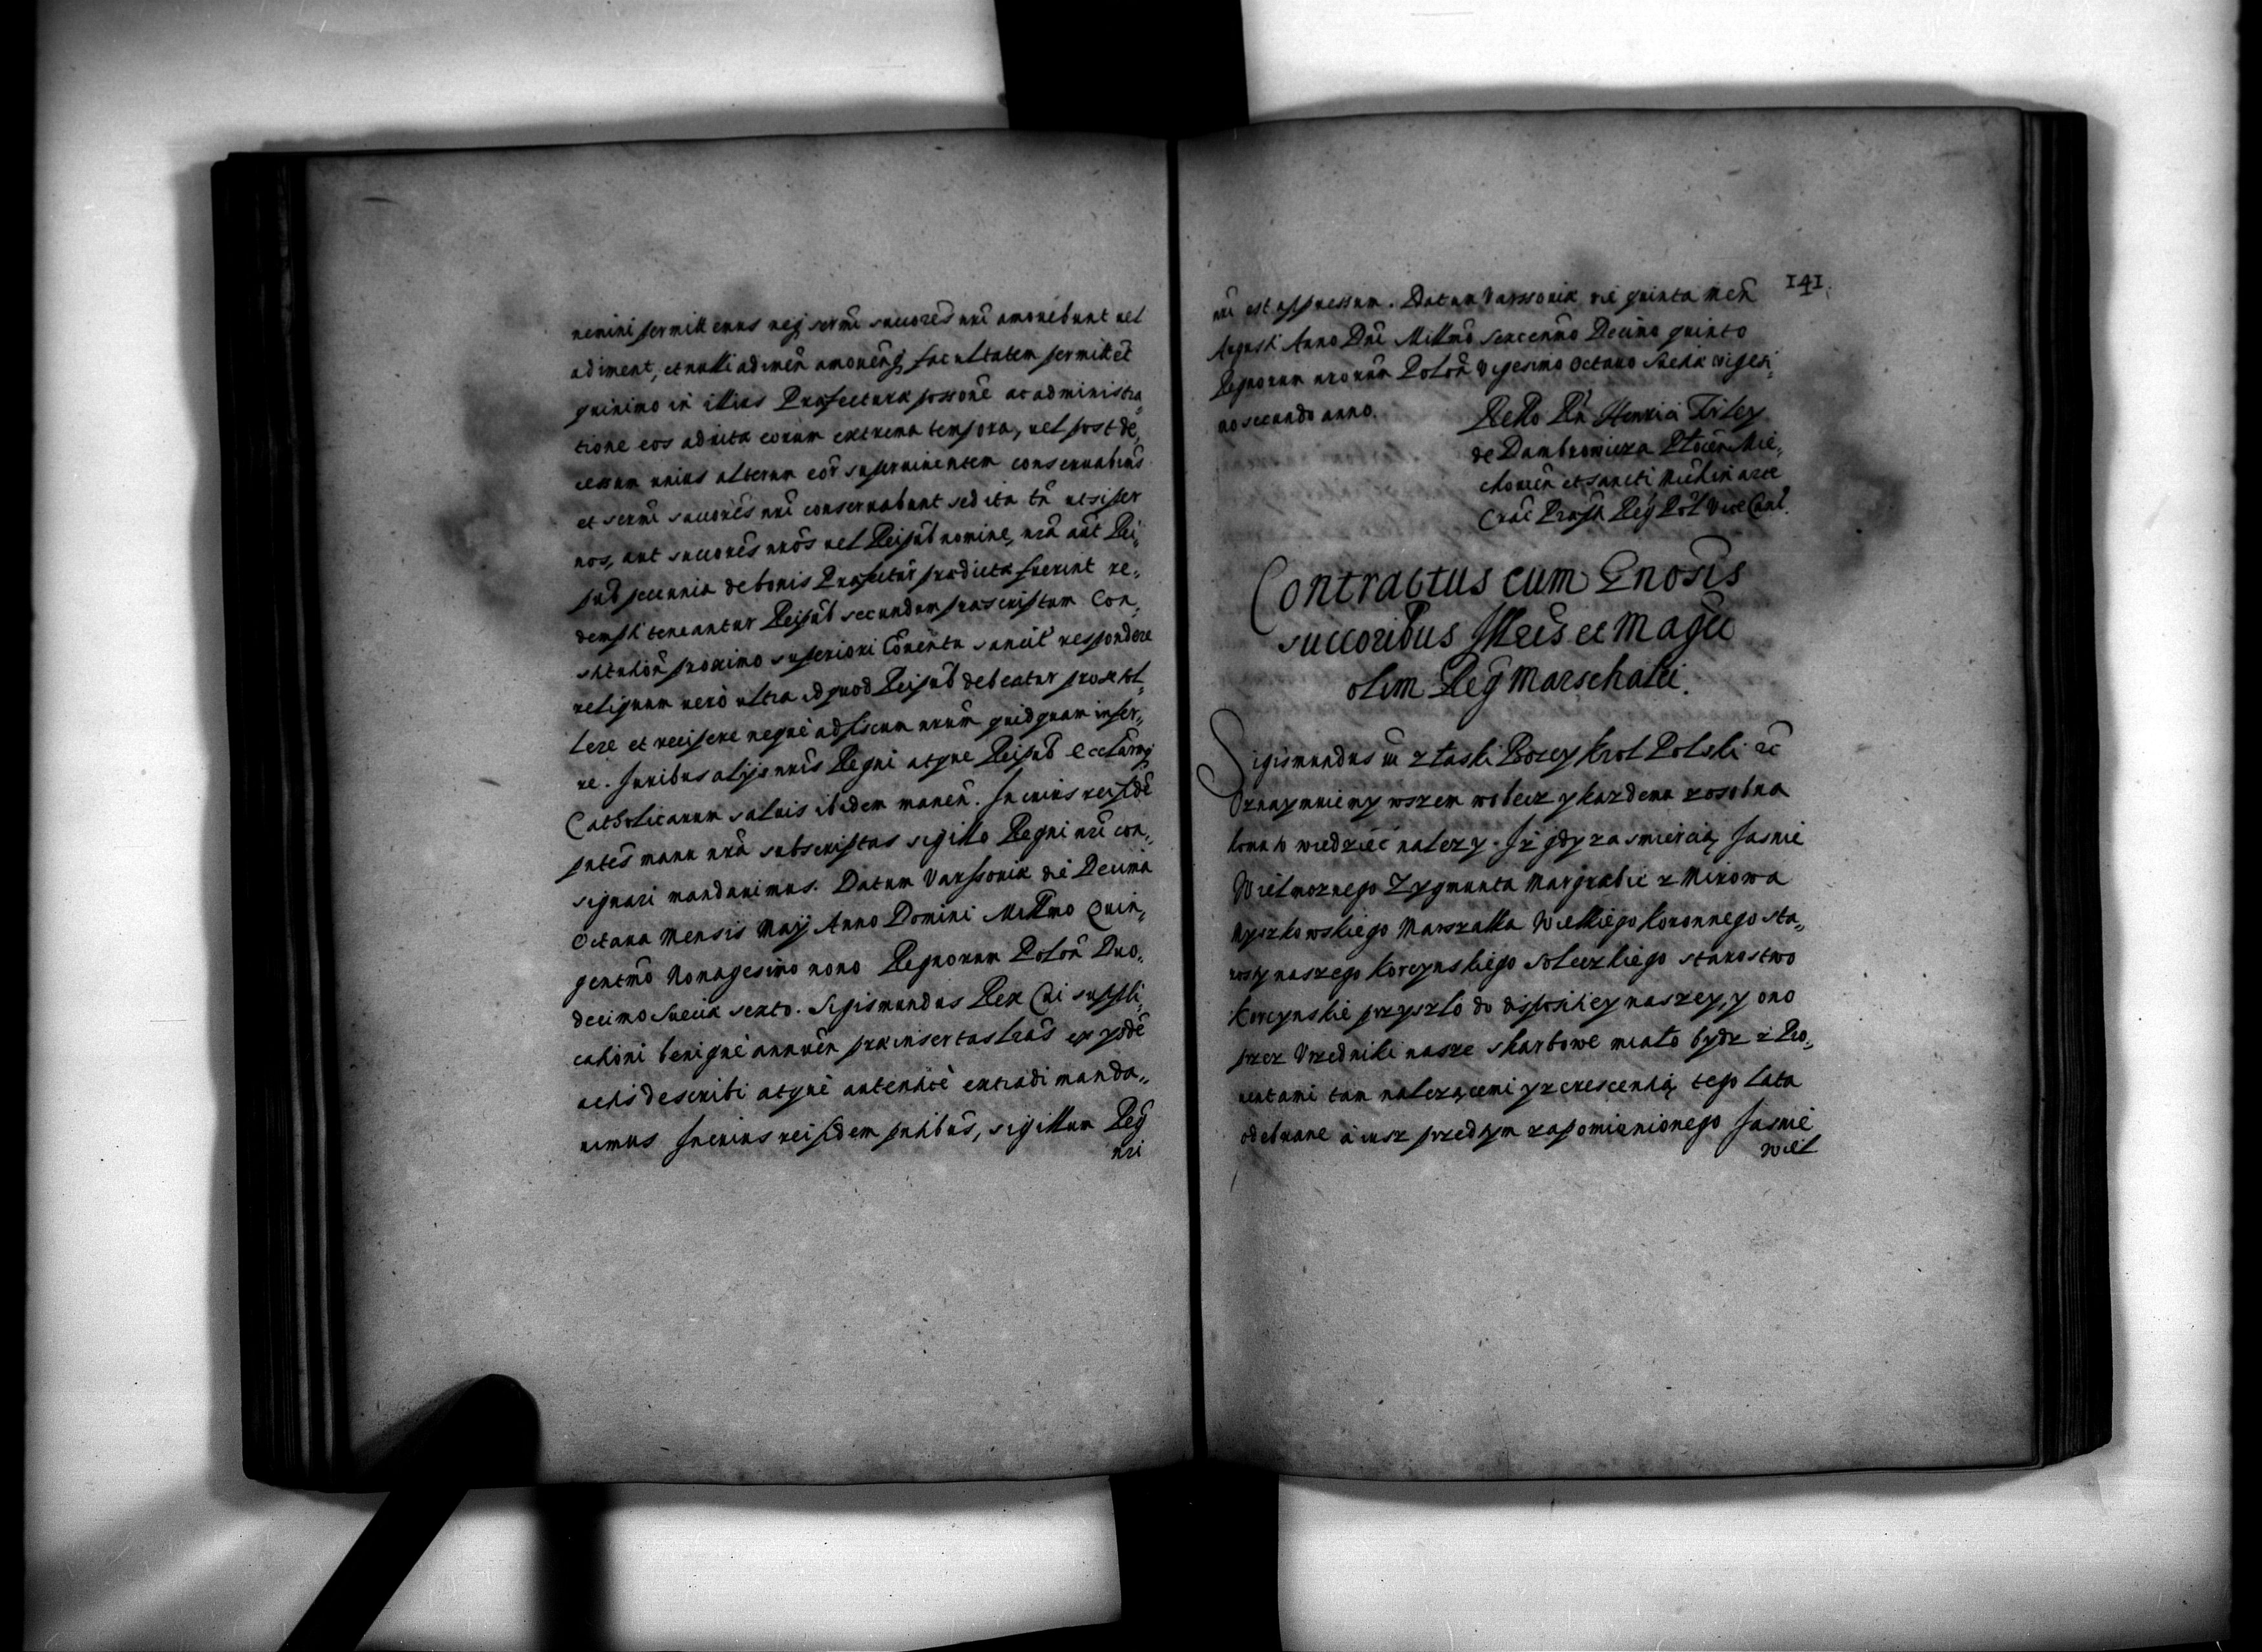 nemini permittemus neq sermi succores nri amovebunt vel
adiment, et nulli adimen amovenq facultatem permittet
quinimo in illius Præfecturæ possone ac administra„
tione eos ad vitæ eorum extrema tempora, vel post de„
cessum unius alterum eor supervivientem conservabims
et sermi succores nri conservabunt sed ita tn ut si per
nos, aut succores nros vel Reipub nomine, nra aut Rei„
pub pecunia de bonis Præfectur prædictæ fuerint re„
dempti teneantur Reipub secundum præscriptum Con„
stitution proximo superiori Conventu sancit respondere
reliquum vero ultra id quod Reipub debeatur pro se tol„
lere et recipere neque ad fiscum nrum quidquam infer„
re. Juribus alijs nris Regni atque Reipub Ecclarumq
Catholicarum salvis ibidem manen. In cuius rei fide
pntes manu nra subscriptas sigillo Regni nri con„
signari mandavimus. Datum Varssoviæ die Decima
Octava Mensis Maij Anno Domini Millmo Quin„
gentmo Nonagesimo nono Regnorum Polon Duo„
decimo Sueciæ sexto. Sigismundus Rex Cui suppli„
cationi benigne annuen præinsertas lras ex ijsde
actis describi atque autentice extradi manda„
vimus In cuius rei fidem pntibus, sigillum Reg
nri
141
nri est appressum. Datum Varssoviæ die quinta Men
Augusti Anno Dni Millmo Sexcenmo Decimo quinto
Regnorum nrorum Polon Vigesimo Octavo Sueciæ vigesi„
mo secundo anno.
Relto Rn Henrici Firley
de Dambrowicza Plocen Mie„
chovien et Sancti Michin arce
Crac Præpti Reg Pol Vice Canl.
Contractus cum Gnosis
succoribus Illris et Magci
olim Reg Marschalci.
Sigismundus III z łaski Bozey Krol Polski etc
Oznaymuiemy wszem wobecz y kazdemu zosobna
komu to wiedzieć nalezy. Iż gdy za smiercią Jasnie
Wielmoznego Zygmunta Margrabie z Mirowa
Myszkowskiego Marszałka Wielkiego Koronnego sta„
rosty naszego Korcynskiego Soleczkiego starostwo
Korcynskie przyszło do dispositiey naszey, y ono
przez Vrzedniki nasze skarbowe miało bydz z Pro„
ventami tam nalezącemi y z crescentią tego lata
odebrane a iusz przedtym zapomienionego Jasnie
Wiel